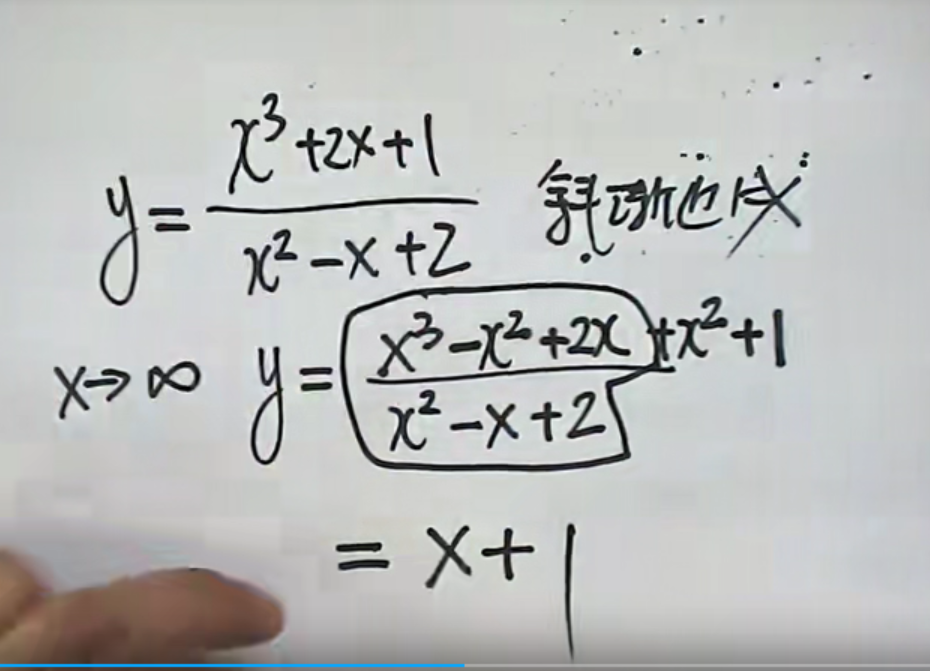 y = (x³+2x+1)/(x²-x+2) 斜渐近线
x→∞ y = (x³-x²+2x+x²+1)/(x²-x+2)
= x+1